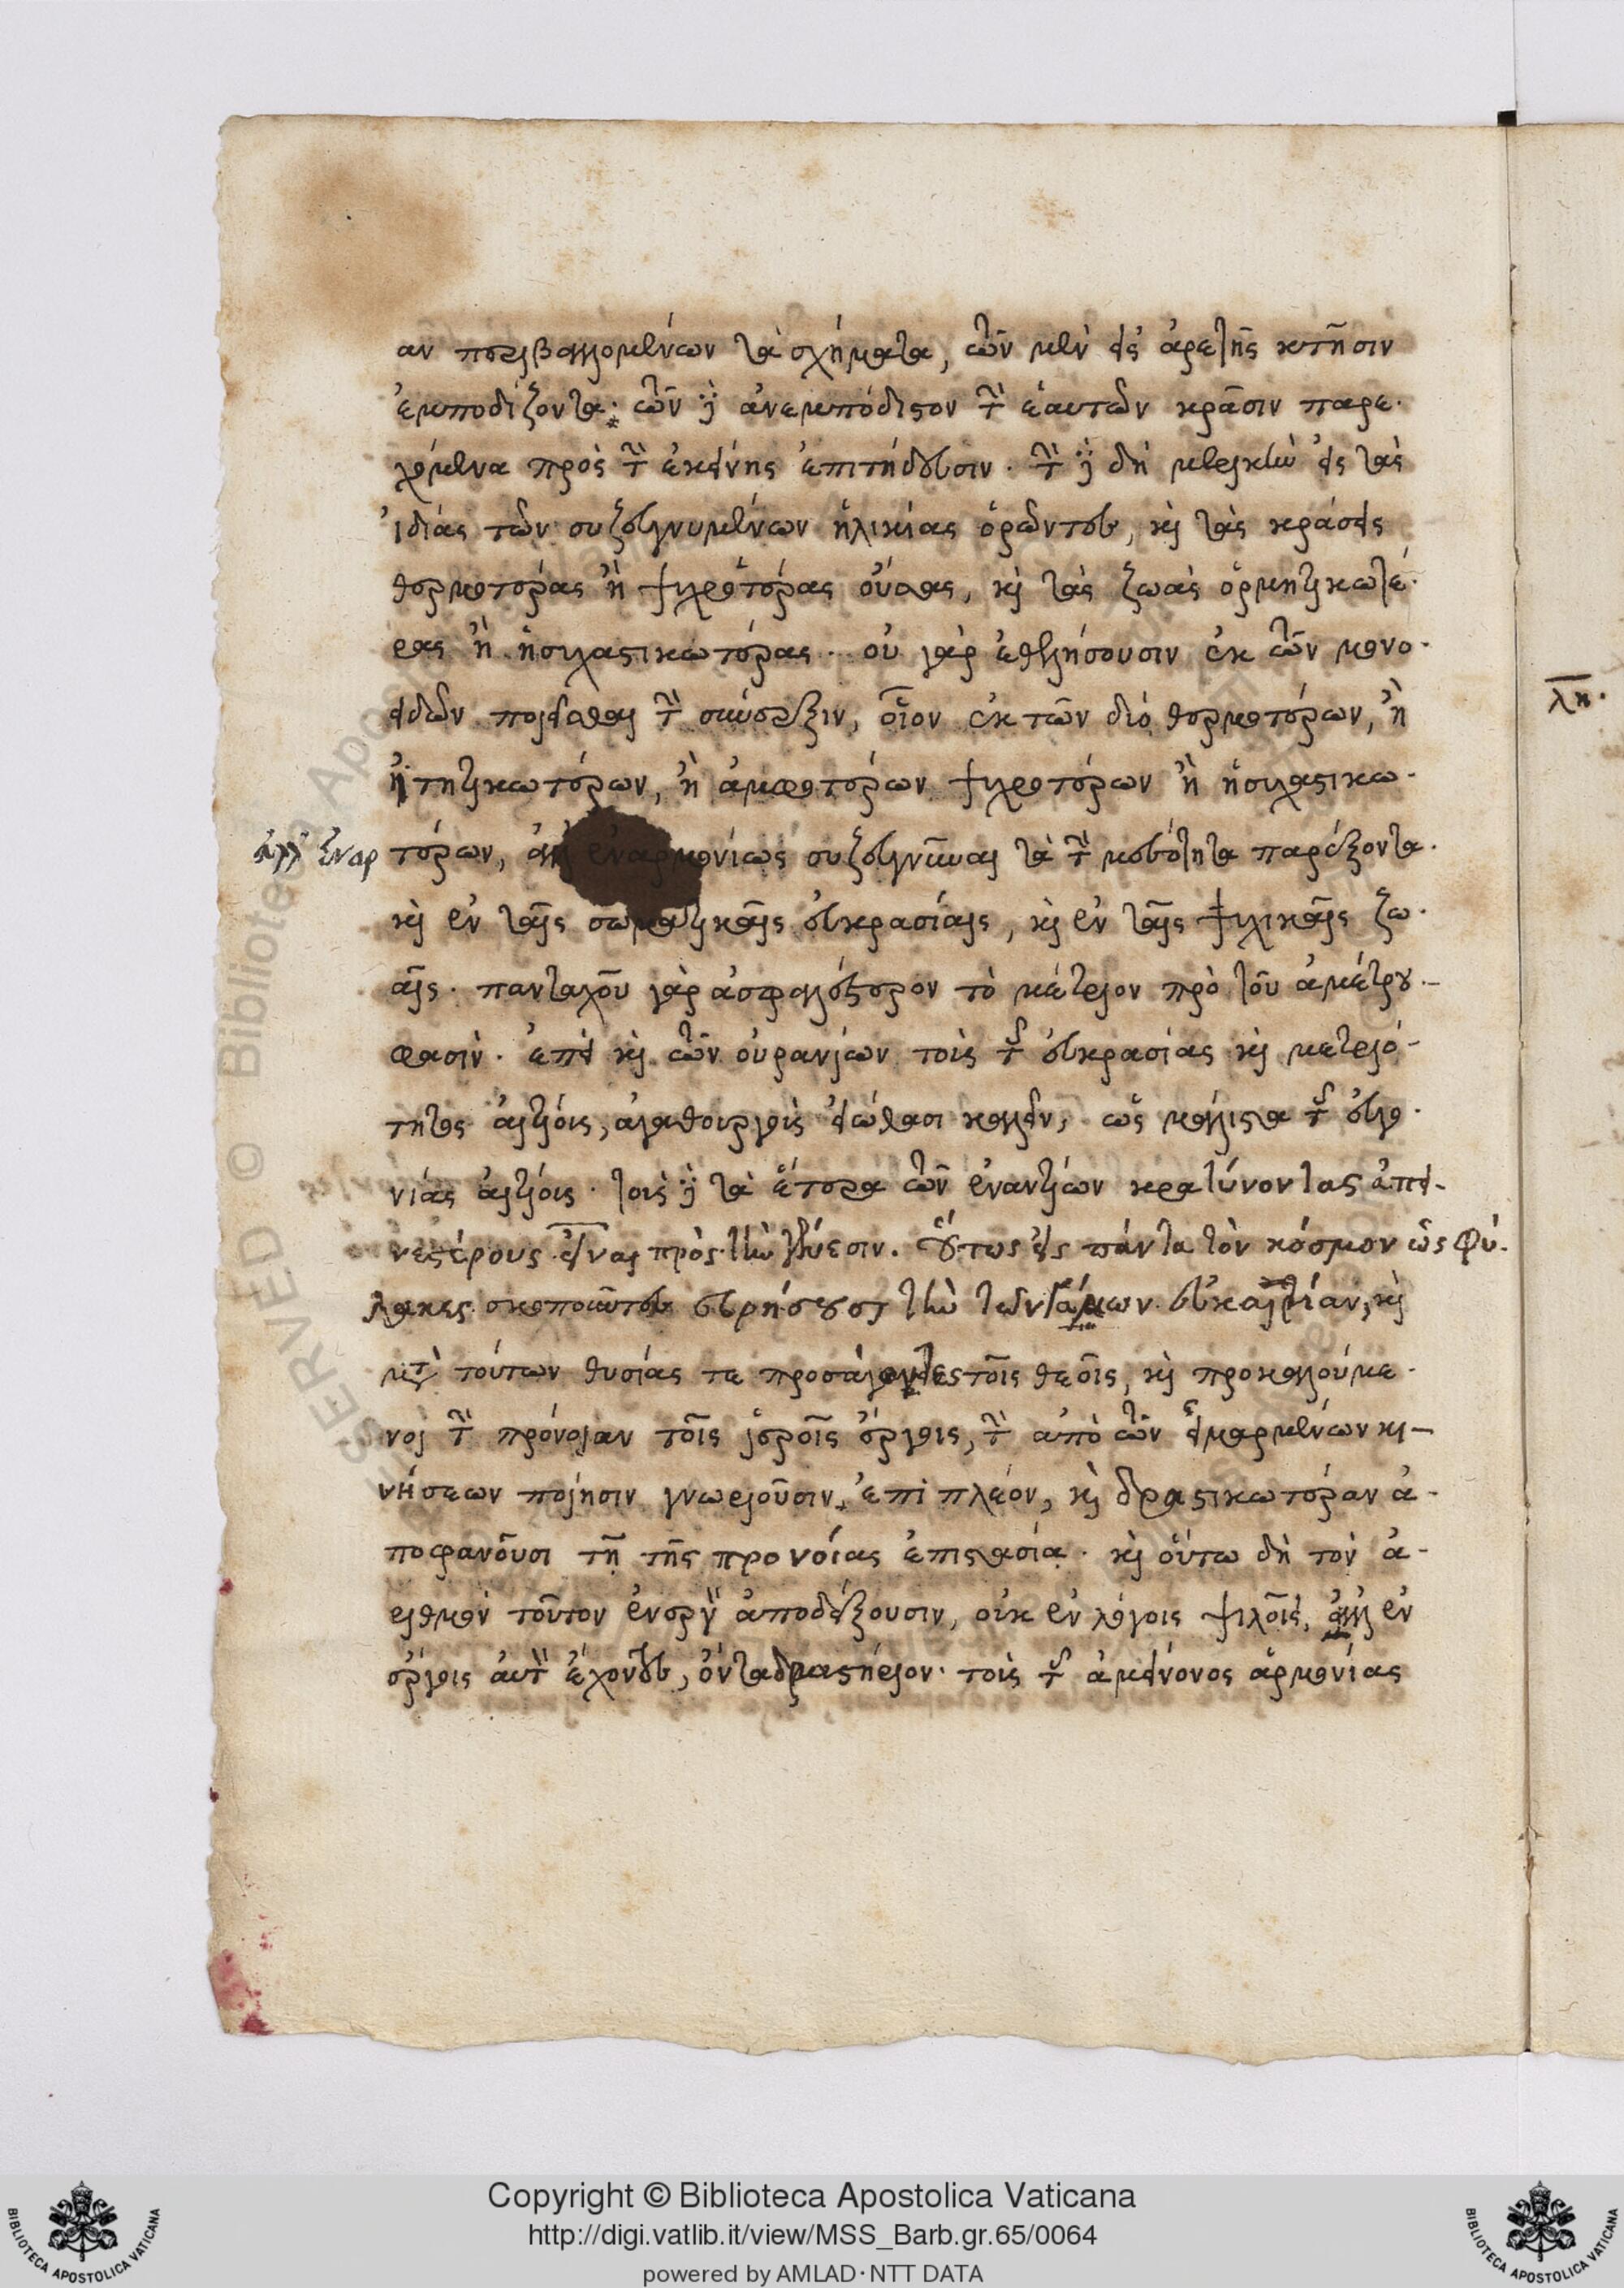 αν περιβαλλομένων τὰ σχήματα, τῶν μὲν εἰς ἀρετῆς κτῆσιν
ἐμποδίζοντα· τῶν δὲ ἀνεμπόδιστον τὴν ἑαυτῶν κρᾶσιν παρε-
χόμενα πρὸς τὴν ἐκείνης ἐπιτήδευσιν. τὴν δὲ δὴ μερικὴν εἰς τὰς
ἰδίας τῶν συζευγνυμένων ἡλικίας ὁρῶντες, καὶ τὰς κράσεις
θερμοτέρας ἢ ψυχροτέρας οὔσας, καὶ τὰς ζωὰς ὁρμητικωτέ-
ρας ἢ ἡσυχαστικωτέρας. οὐ γὰρ ἐθελήσουσιν ἐκ τῶν μονο-
ειδῶν ποιεῖσθαι τὴν σύνερξιν, οἷον ἐκ τῶν δύο θερμοτέρων, ἢ
τητικωτέρων, ἢ ἀμφοτέρων ψυχροτέρων ἢ ἡσυχαστικω-
ἀλλ' ἐναρ
τέρων, ἀλλ' ἐναρμονίως συζευγνῦναι τὰ τὴν μεσότητα παρέξοντα.
καὶ ἐν ταῖς σωματικαῖς εὐκρασίαις, καὶ ἐν ταῖς ψυχικαῖς ζω-
αῖς. πανταχοῦ γὰρ ἀσφαλέστερον τὸ μέτριον πρὸ τοῦ ἀμέτρου
φασίν. ἐπεὶ καὶ τῶν οὐρανίων τοὺς τῆς εὐκρασίας καὶ μετριό-
τητος αἰτίους, ἀγαθουργοὺς εἰώθασι καλεῖν, ὡς μάλιστα τῆς εὐγο-
νίας αἰτίους. τοὺς δὲ τὰ ἕτερα τῶν ἐναντίων κρατύνοντας ἀπει-
νεστέρους εἶναι πρὸς τὴν γένεσιν. οὕτως εἰς πάντα τὸν κόσμον ὡς φύ-
λακες σκοποῦντες εὑρήσουσι τὴν τῶν γάμων εὐκαιρίαν, καὶ
μετὰ τούτων θυσίας τε προσάγοντες τοῖς θεοῖς, καὶ προκαλούμε-
νοι τὴν πρόνοιαν τοῖς ἱεροῖς ἔργοις, τὴν ἀπὸ τῶν εἱμαρμένων κι-
νήσεων ποίησιν γνωριοῦσιν ἐπὶ πλέον, καὶ δραστικωτέραν ἀ-
ποφανοῦσι τῇ τῆς προνοίας ἐπιστασίᾳ. καὶ οὕτω δὴ τὸν ἀ-
ριθμὸν τοῦτον ἐνεργὸν ἀποδείξουσιν, οὐκ ἐν λόγοις ψιλοῖς, ἀλλ' ἐν
ἔργοις αὐτὸν ἔχοντες, ὄντα δραστήριον. τοὺς τῆς ἀμείνονος ἁρμονίας
λη.
Copyright © Biblioteca Apostolica Vaticana
http://digi.vatlib.it/view/MSS_Barb.gr.65/0064
powered by AMLAD·NTT DATA
BIBLIOTECA APOSTOLICA VATICANA
BIBLIOTECA APOSTOLICA VATICANA